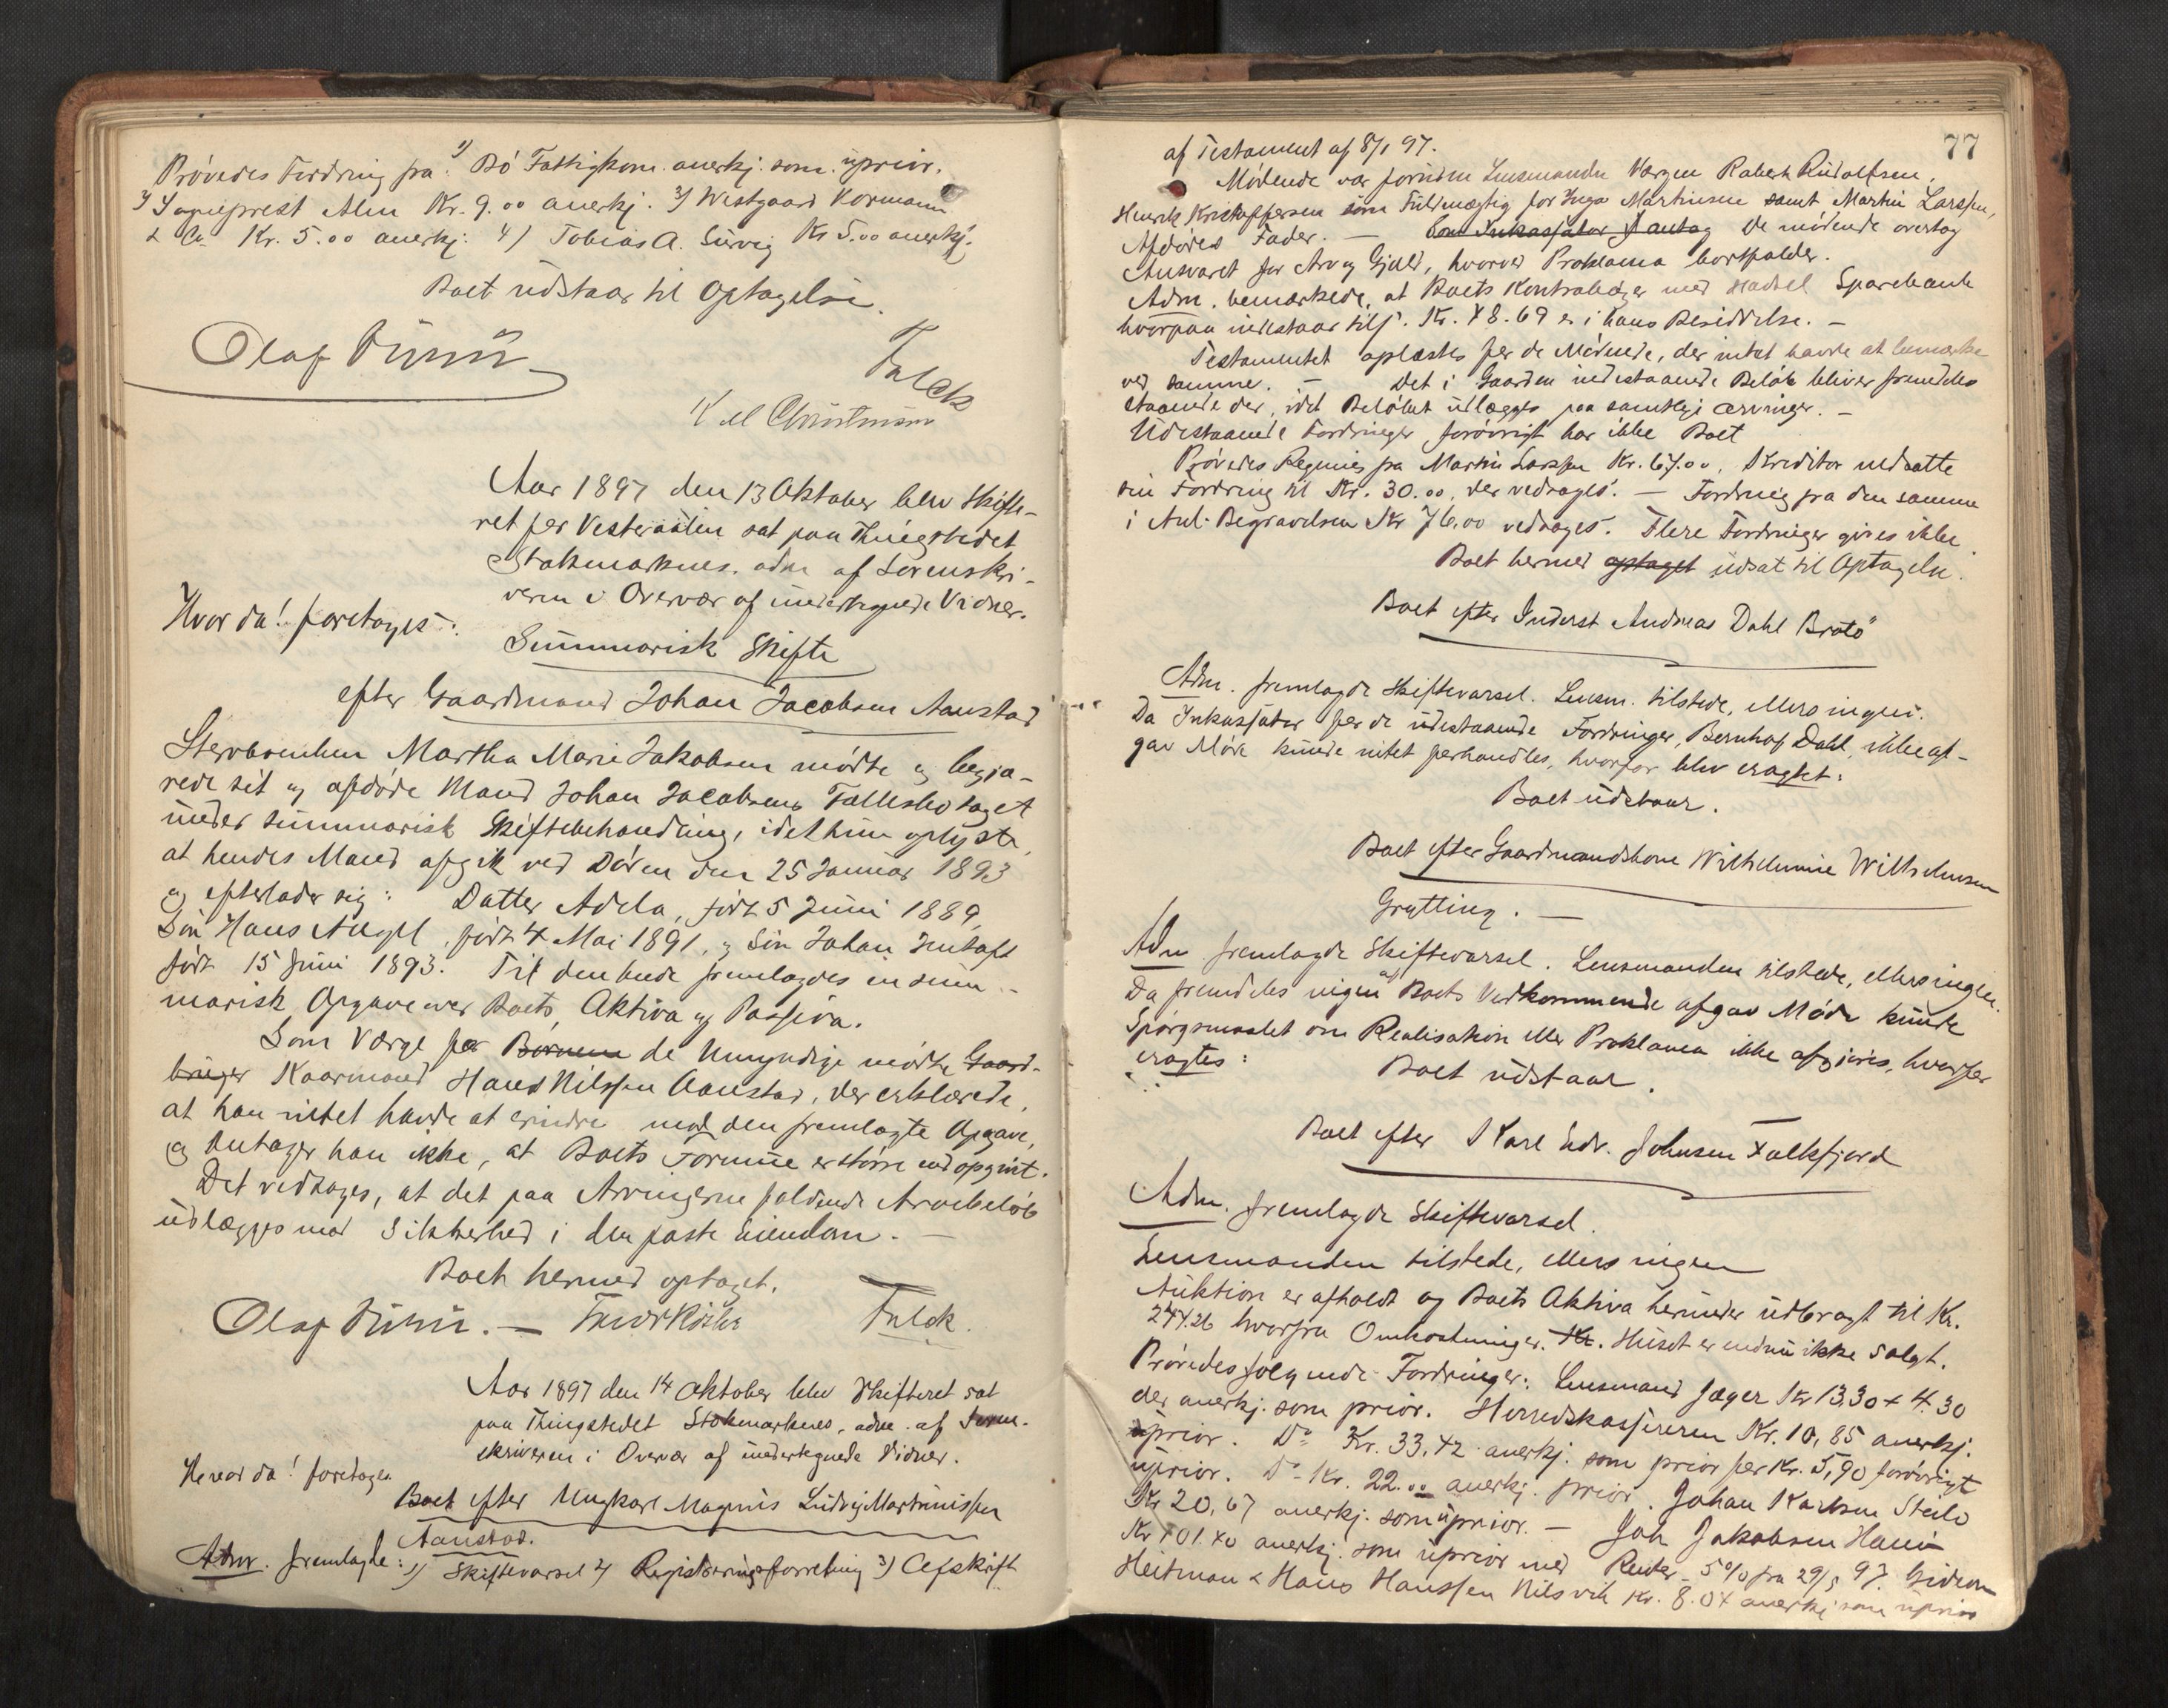 Prøvedes Fordring fra 1) Bø Fattigkom. anerkj. som uprior.
2) Sogneprest Alm Kr. 9.00 anerkj. 3) Westgaard Kormann
& Co Kr. 5.00 anerkj. 4) Tobias A. Survig Kr 5.00 anerkj.
Boet udstaar til Optagelse.
Olaf
Falck
Christensen
Aar 1897 den 13 Oktober blev Skifte-
ret for Vesteraalen sat paa Thingstedet
Stokmarknes, adm af Sorenskri-
veren i Overvær af undertegnede Vidner.
Hvor da! foretoges:
Summarisk Skifte
efter Gaardmand Johan Jacobsen Aanstad
Sterboenken Martha Marie Jakobsen mødte og begjæ-
rede sit og afdøde Mand Johan Jacobsens Fællesbo taget
under summarisk Skiftebehandling, idet hun oplyste,
at hendes Mand afgik ved Døden den 25 Januar 1893
og efterlader sig: Datter Adela, født 5 Juni 1889,
Søn Hans Angel, født 4 Mai 1891, og Søn Johan
født 15 Juni 1893. Til den Ende fremlagdes en sum-
marisk Opgave over Boets Aktiva og Passiva.
Som Værge for Børnene de Umyndige mødte Gaard-
bruger Kaarmand Hans Nilssen Aanstad, der erklærede,
at han intet havde at erindre mod den fremlagte Opgave,
og antager han ikke, at Boets Formue er større end opgivet.
Det vedtoges, at det paa Arvingerne faldende Arvebeløb
udlægges mod Sikkerhed i den faste Eiendom. —
Boet hermed optaget.
Olaf — Falck.
Aar 1897 den 14 Oktober blev Skifteret sat
paa Thingstedet Stokmarknes, adm. af Soren-
skriveren i Overvær af undertegnede Vidner.
Hvor da! foretoges
Boet efter Ungkarl Magnus Ludvig Martinussen
Aanstad.
Adm. fremlagde: 1) Skiftevarsel 2) Registreringsforretning 3) Afskrift
77
af Testament af 8/1 97.
Mødende var foruden Lensmanden Værgen Robert Rudolfsen,
Henrik Kristoffersen som Fuldmægtig for Inga Martinsen samt Martin Larssen,
Afdødes Fader. — Som Inkassator antog De mødende overtog
Ansvaret for Arv og Gjæld, hvorved Proklama bortfalder.
Adm. bemærkede, at Boets Kontrabøger med Hadsel Sparebank
hvorpaa indestaar tils. Kr. 48.69 er i hans Besiddelse. —
Testamentet oplæstes for de Mødende, der intet havde at bemærke
ved samme. — Det i Gaarden indestaaende Beløb bliver fremdeles
staaende der, idet Beløbet udlægges paa samtlige Arvinger. —
Udestaaende Fordringer forøvrigt har ikke Boet
Prøvedes Regning fra Martin Larssen Kr. 67.00. Kreditor nedsatte
sin Fordring til Kr. 30.00, der vedtoges. — Fordring fra den samme
i Anl. Begravelsen Kr 76.00 vedtoges. Flere Fordringer gives ikke.
Boet hermed optaget udsat til Optagelse.
Boet efter Inderst Andreas Dahl Bratø
Adm. fremlagde Skiftevarsel. Lensm. tilstede, ellers ingen.
Da Inkassator for de udestaaende Fordringer, Bernhof Dahl, ikke af-
gav Møde kunde intet forhandles, hvorfor blev eragtet:
Boet udstaar.
Boet efter Gaardmandskone Wilhelmine Wilhelmsen
Grytting. —
Adm fremlagde Skiftevarsel. Lensmanden tilstede, ellers ingen.
Da fremdeles ingen af Boets Vedkommende afgav Møde kunde
Spørgsmaalet om Realisation eller Proklama ikke afgjøres, hvorfor
eragtes:
Boet udstaar.
Boet efter Karl Edv. Johnsen Falkfjord
Adm. fremlagde Skiftevarsel.
Lensmanden tilstede, ellers ingen
Auktion er afholdt og Boets Aktiva herunder udbragt til Kr.
247.26 hvorfra Omkostninger. Kr. Huset er endnu ikke solgt.
Prøvedes følgende Fordringer: Lensmand Jæger Kr 13,30 + 4.30
der anerkj. som prior. Herredskassereren Kr. 10,85 anerkj.
uprior. Do Kr. 33,42 anerkj. som prior for Kr. 5,90 forøvrigt
uprior. Do Kr. 22.00 anerkj. prior. Johan Karlsen Steilo
Kr 20,67 anerkj. som uprior. — Joh Jakobsen
Kr 101.40 anerkj. som uprior med Renter 5% fra 29/5 97. Gideon
Heitman & Hans Hanssen Nilsvik Kr. 8.04 anerkj som uprior